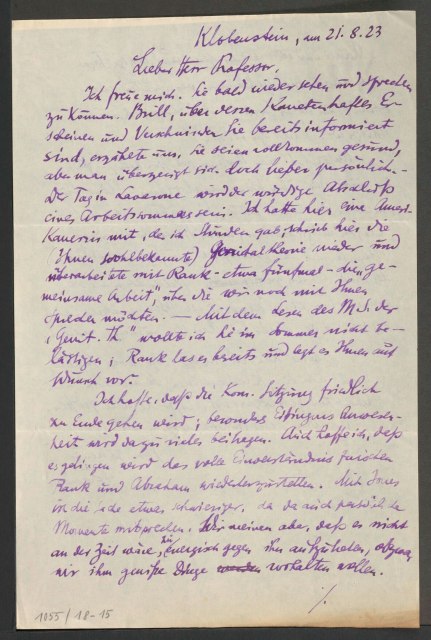 Klobenstein, am 21.8.23
Lieber Herr Professor,
Ich freue mich, Sie bald wiedersehen und sprechen
zu können. Brill, über dessen Kometenhaftes Er-
scheinen und Verschwinden Sie bereits informiert
sind, erzählte uns, Sie seien vollkommen gesund,
aber man überzeugt sich doch lieber persönlich.
Der Tag in Lavarone wird der würdige Abschluß
eines Arbeitssommers sein. Ich hatte hier eine Ameri-
kanerin mit, der ich Stunden gab, schrieb hier die
(Ihnen wohlbekannte) Genitaltheorie nieder und
überarbeitete mit Rank - etwa fünfmal - die „ge-
meinsame Arbeit", über die wir noch mit Ihnen
reden möchten. — Mit dem Lesen des M.S. der
„Genit. Th" wollte ich Sie im Sommer nicht be-
lästigen; Rank las es bereits und legt es Ihnen auf
Wunsch vor.
Ich hoffe, daß die Kom. Sitzung friedlich
zu Ende gehen wird; besonders Eitingons Anwesen-
heit wird dazu vieles beitragen. Auch hoffe ich, daß
es gelingen wird das volle Einverständnis zwischen
Rank und Abraham wiederherzustellen. Mit Jones
ist die Sache etwas schwieriger, da da auch persönliche
Momente mitsprechen. Wir meinen aber, daß es nicht
an der Zeit wäre, zu energisch gegen ihn aufzutreten, obzwar
wir ihm gewisse Dinge vorhalten wollen.
./.
1055/18-15